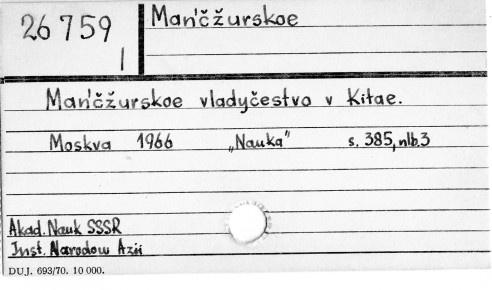 26 759
1
Mań'čžurskoe
Mań'čžurskoe vladyčestvo v Kitae.
Moskva 1966 „Nauka" s. 385, nlb.3
Akad. Nauk SSSR
Inst. Narodow Azii
DUJ. 693/70. 10 000.